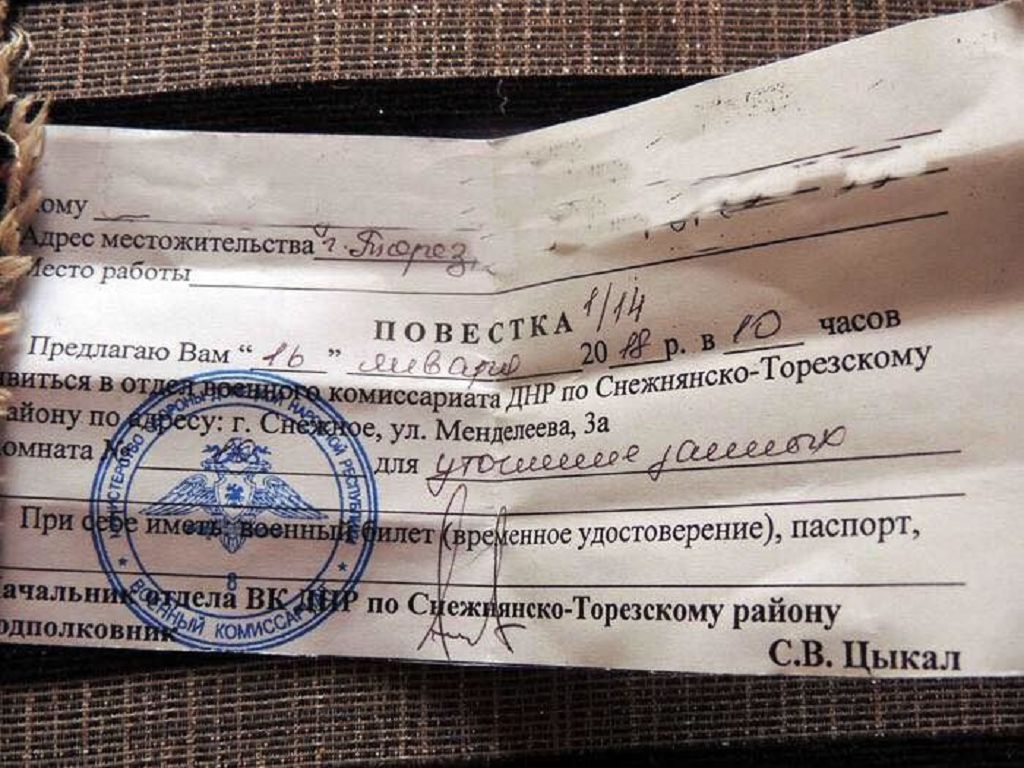 ому
Адрес местожительства г. Торез
Место работы
ПОВЕСТКА 1/14
Предлагаю Вам “ 16 ” января 2018 р. в 10 часов
явиться в отдел военного комиссариата ДНР по Снежнянско-Торезскому
айону по адресу: г. Снежное, ул. Менделеева, 3а
омната № для уточнение данных
При себе иметь: военный билет (временное удостоверение), паспорт,
ачальник отдела ВК ДНР по Снежнянско-Торезскому району
одполковник
С.В. Цыкал
МИНИСТЕРСТВО ОБОРОНЫ ДОНЕЦКОЙ НАРОДНОЙ РЕСПУБЛИКИ
8
ВОЕННЫЙ КОМИССАРИАТ